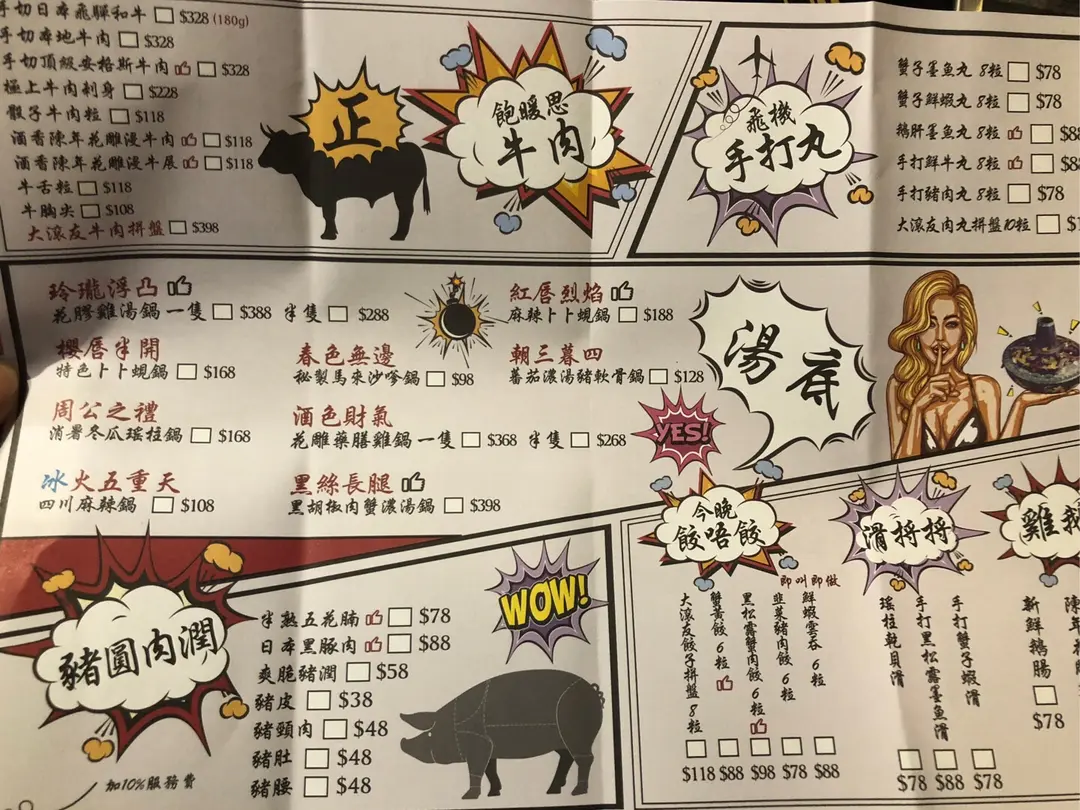 手切日本飛驒和牛 $328 (180g)
手切本地牛肉 $328
手切頂級安格斯牛肉 $328
極上牛肉刺身 $228
骰子牛肉粒 $118
酒香陳年花雕浸牛肉 $118
酒香陳年花雕浸牛展 $118
牛舌粒 $118
牛胸尖 $108
大滾友牛肉拼盤 $398
正
飽暖思
牛肉
飛機
手打丸
蟹子墨魚丸 8粒 $78
蟹子鮮蝦丸 8粒 $78
鵝肝墨魚丸 8粒
手打鮮牛丸 8粒
手打豬肉丸 8粒 $78
大滾友肉丸拼盤10粒
玲瓏浮凸
花膠雞湯鍋 一隻 $388 半隻 $288
紅唇烈焰
麻辣卜卜蜆鍋 $188
櫻唇半開
特色卜卜蜆鍋 $168
春色無邊
秘製馬來沙嗲鍋 $98
朝三暮四
蕃茄濃湯豬軟骨鍋 $128
周公之禮
消暑冬瓜瑤柱鍋 $168
酒色財氣
花雕藥膳雞鍋 一隻 $368 半隻 $268
冰火五重天
四川麻辣鍋 $108
黑絲長腿
黑胡椒肉蟹濃湯鍋 $398
湯底
YES!
豬圓肉潤
半熟五花腩 $78
日本黑豚肉 $88
爽脆豬潤 $58
豬皮 $38
豬頸肉 $48
豬肚 $48
豬腰 $48
加10%服務費
WOW!
今晚
餃唔餃
即叫即做
鮮蝦雲吞 6粒 $88
韭菜豬肉餃 6粒 $78
黑松露蟹肉餃 6粒 $98
蟹黃餃 6粒 $88
大滾友餃子拼盤 8粒 $118
滑捋捋
手打蟹子蝦滑 $78
手打黑松露墨魚滑 $88
瑤柱乾貝滑 $78
新鮮鵝腸 $78